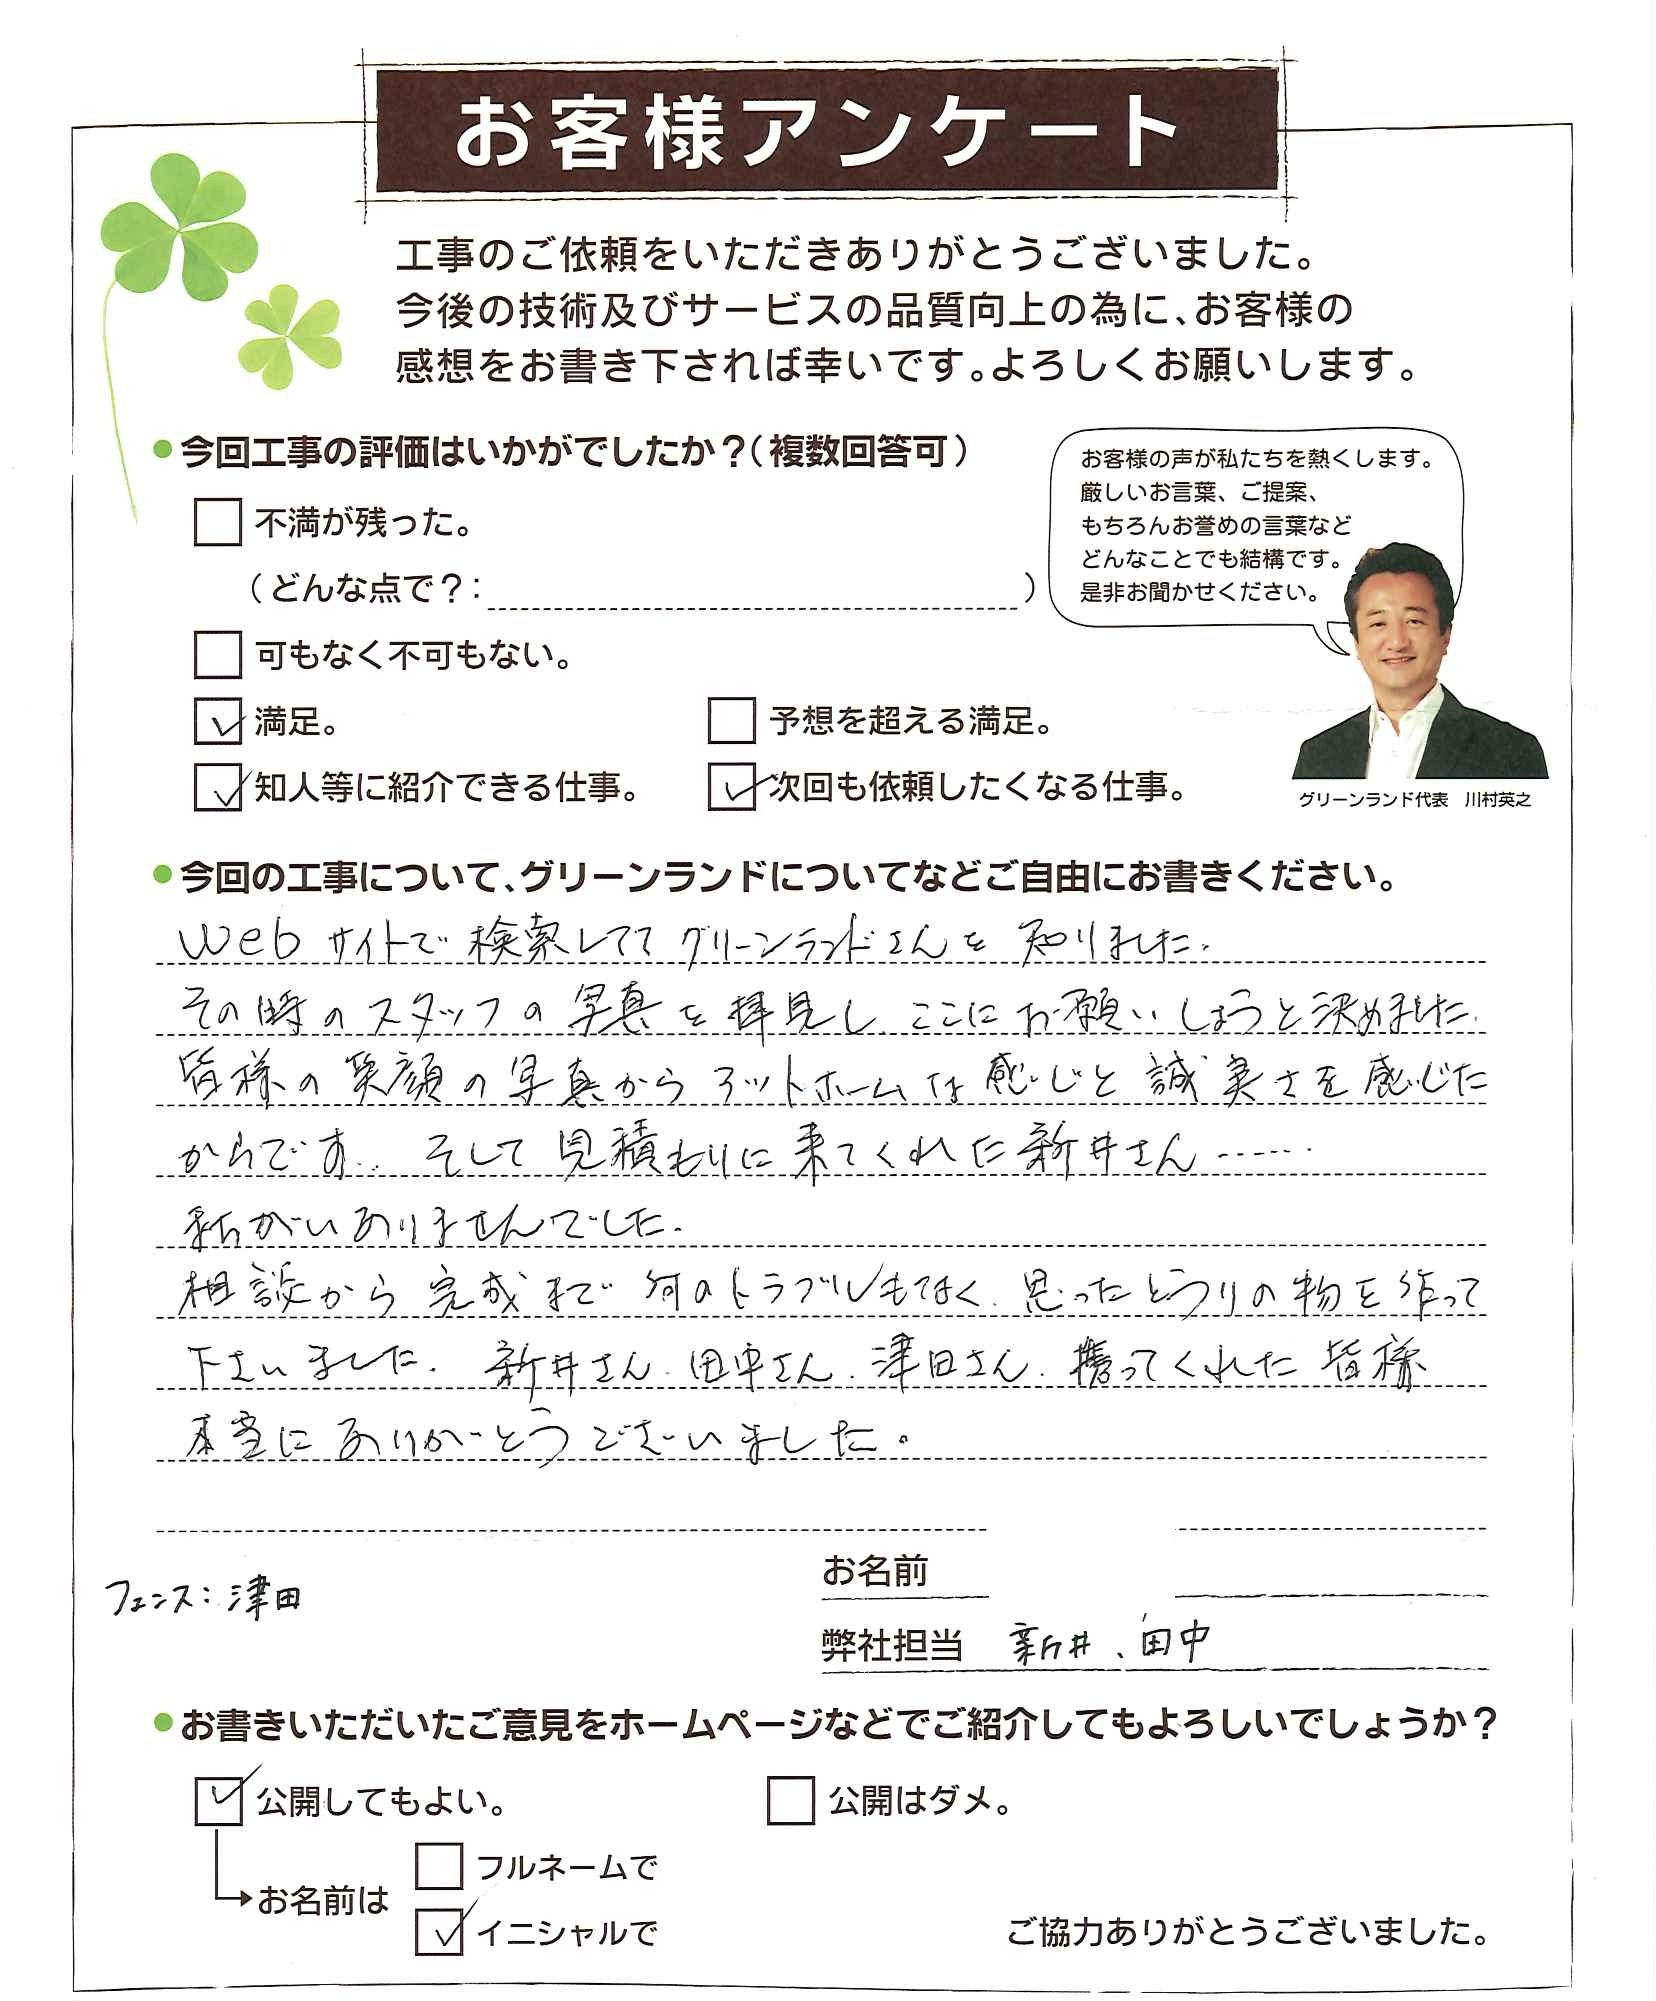 お客様アンケート
工事のご依頼をいただきありがとうございました。
今後の技術及びサービスの品質向上の為に、お客様の
感想をお書き下されば幸いです。よろしくお願いします。
●今回工事の評価はいかがでしたか？（複数回答可）
不満が残った。
（どんな点で？：　）
可もなく不可もない。
満足。
予想を超える満足。
知人等に紹介できる仕事。
次回も依頼したくなる仕事。
お客様の声が私たちを熱くします。
厳しいお言葉、ご提案、
もちろんお誉めの言葉など
どんなことでも結構です。
是非お聞かせください。
グリーンランド代表　川村英之
●今回の工事について、グリーンランドについてなどご自由にお書きください。
Webサイトで検索してて グリーンランドさんを 知りました。
その時のスタッフの写真を拝見し、ここにお願いしようと決めました。
皆様の笑顔の写真からアットホームな感じと誠実さを感じた
からです。そして見積もりに来てくれた新井さん……
まちがいありませんでした。
相談から完成まで何のトラブルもなく、思ったとうりの物を作って
下さいました。新井さん、田中さん、津田さん、携ってくれた皆様
本当にありがとうございました。
お名前
フェンス：津田
弊社担当　新井、田中
●お書きいただいたご意見をホームページなどでご紹介してもよろしいでしょうか？
公開してもよい。
公開はダメ。
お名前は
フルネームで
イニシャルで
ご協力ありがとうございました。